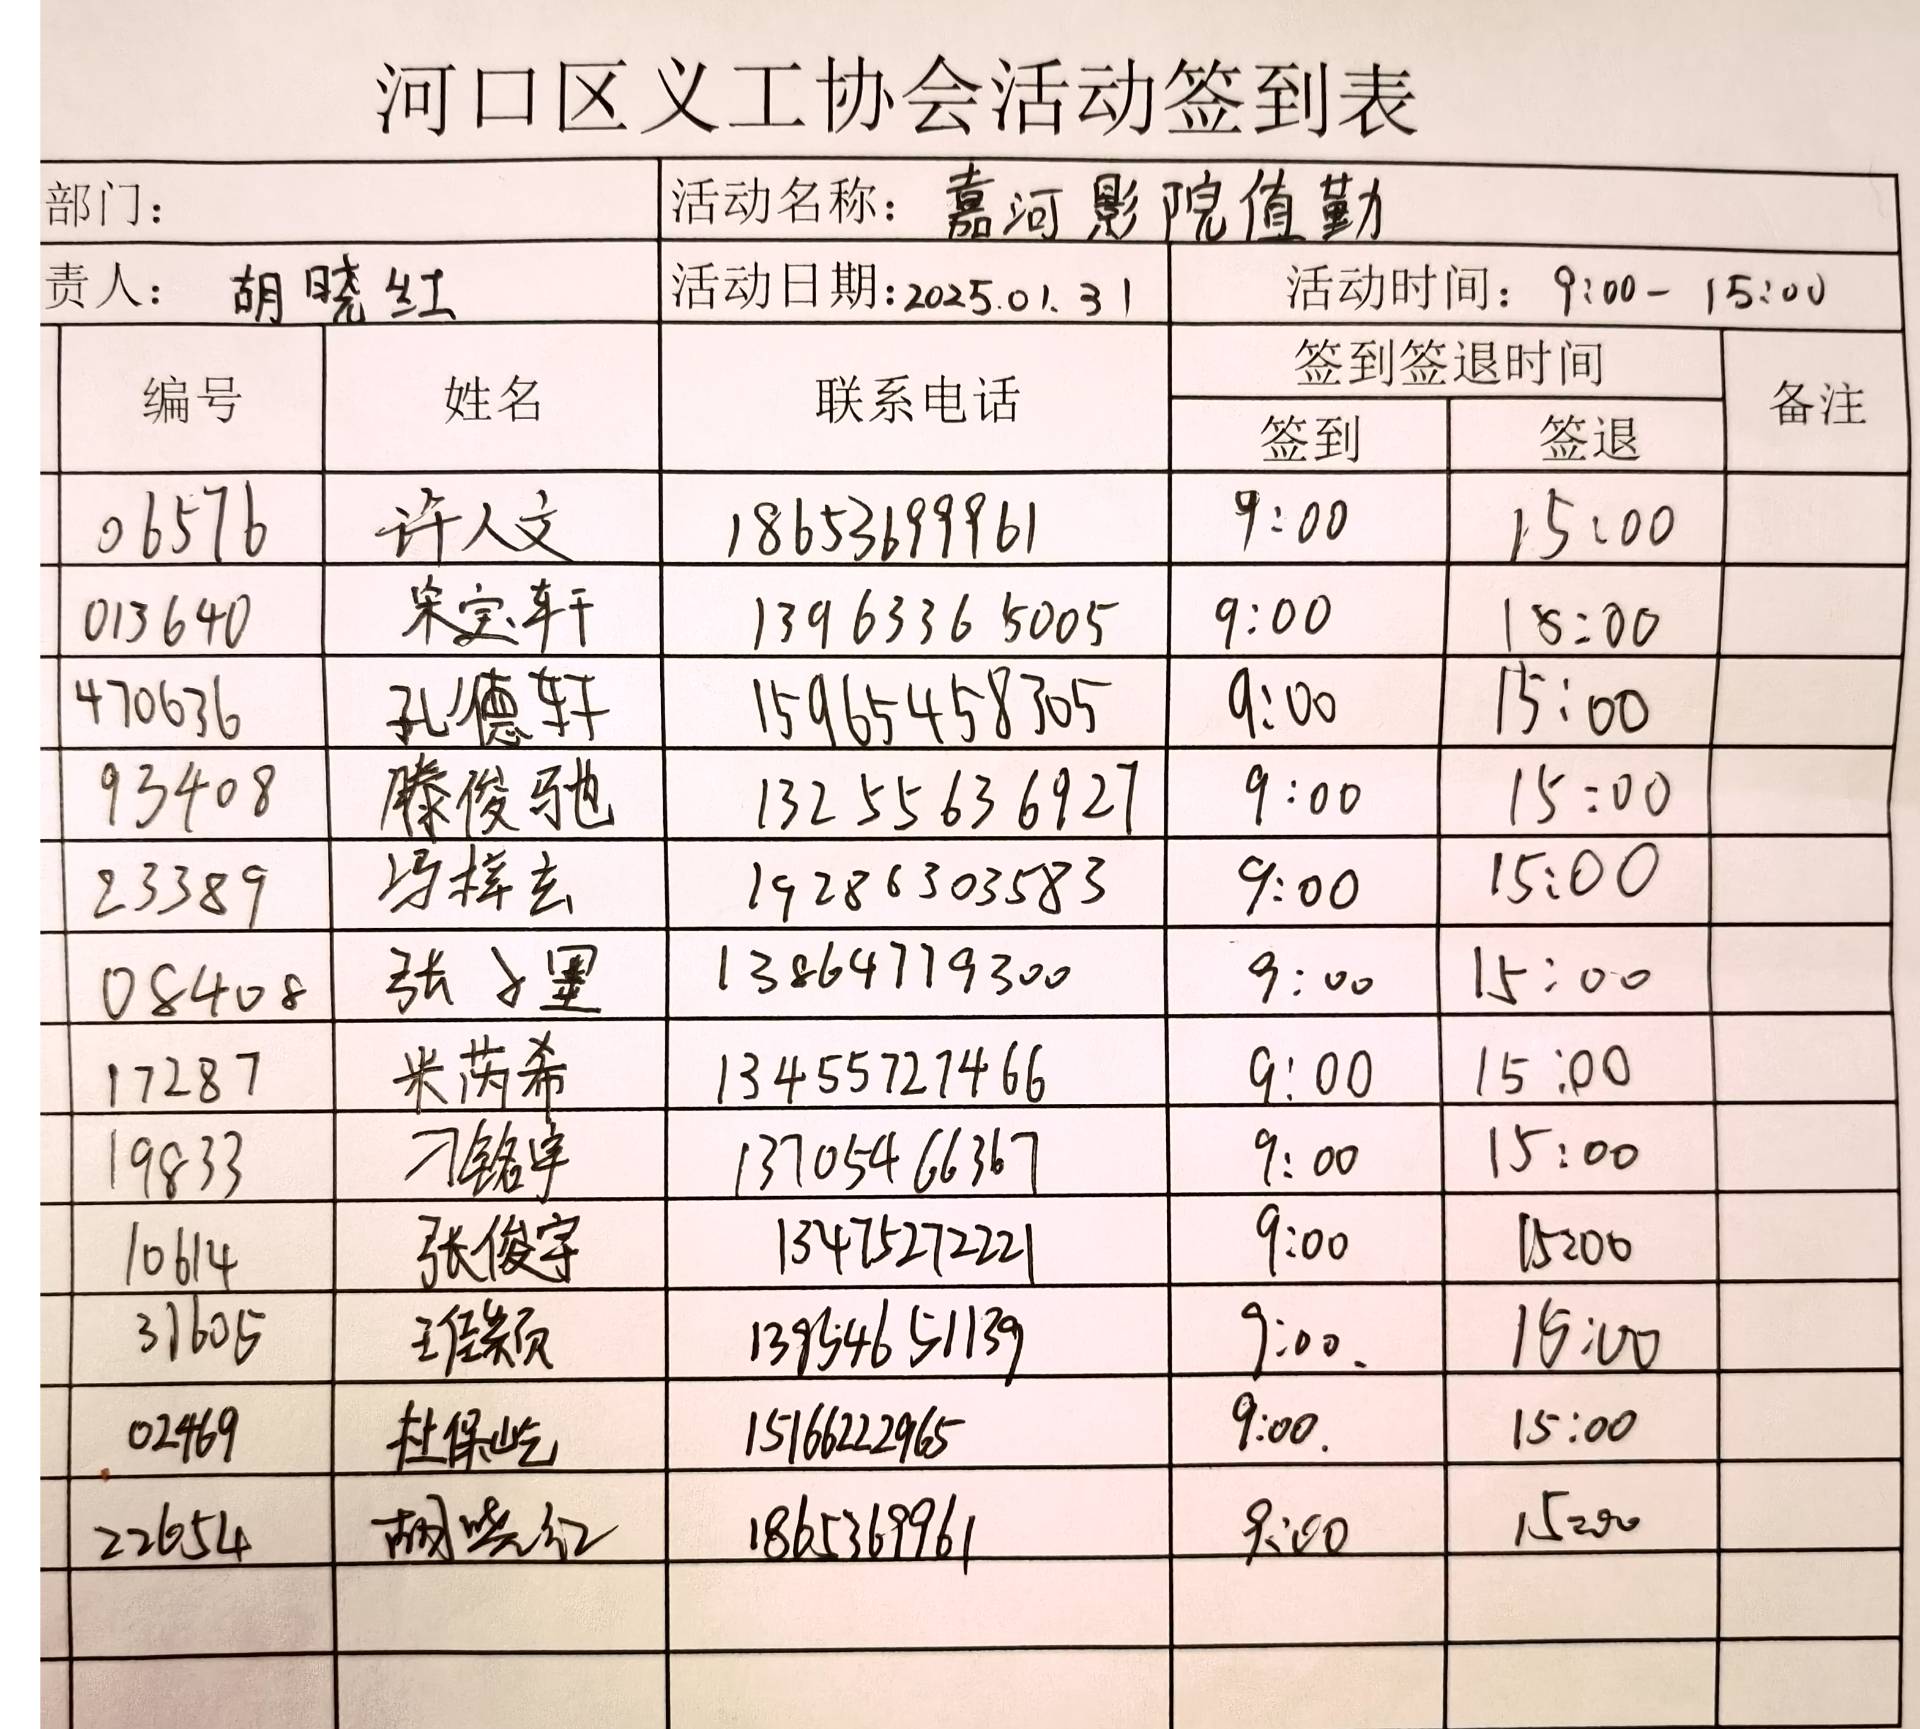 河口区义工协会活动签到表
部门： 活动名称：嘉河影院值勤
责人：胡晓红 活动日期：2025.01.31 活动时间：9:00-15:00
编号 姓名 联系电话 签到签退时间 备注
签到 签退
06576 许人文 18653699961 9:00 15:00
013640 宋宝轩 13963365005 9:00 15:00
470636 孔德轩 15965458305 9:00 15:00
93408 滕俊驰 13255636927 9:00 15:00
23389 冯梓玄 19286303583 9:00 15:00
08408 张子墨 13864779300 9:00 15:00
17287 米芮希 13455727466 9:00 15:00
19833 刁铭宇 13705466367 9:00 15:00
10614 张俊宇 13475272221 9:00 15:00
31605 王佳颖 13954651139 9:00. 15:00
02469 杜保屹 15166222965 9:00. 15:00
22654 胡晓红 1865369961 9:00 15:00